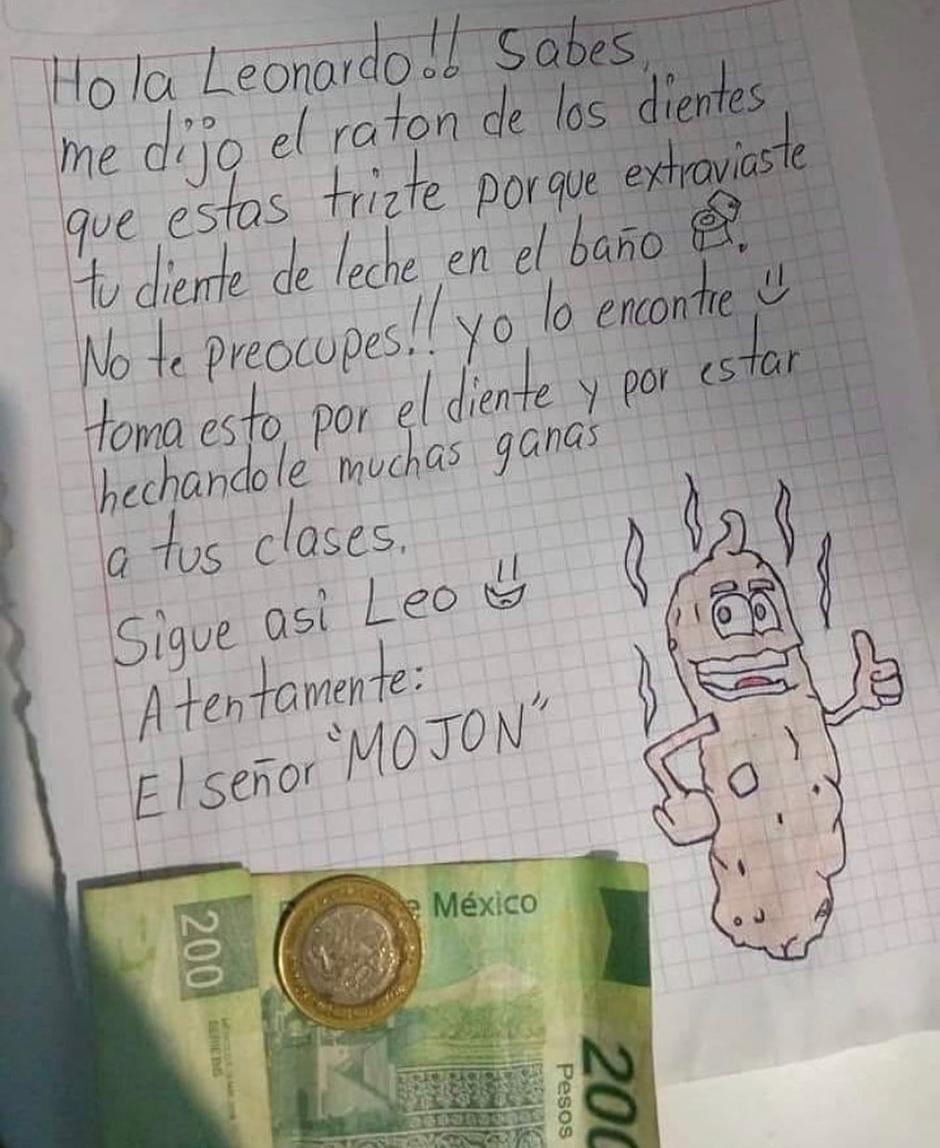 Hola Leonardo!! Sabes,
me dijo el raton de los dientes
que estas trizte porque extraviaste
tu diente de leche en el baño.
No te preocupes!! yo lo encontre
toma esto, por el diente y por estar
hechandole muchas ganas
a tus clases.
Sigue asi Leo
Atentamente:
El señor "MOJON"
200
México
200
Pesos